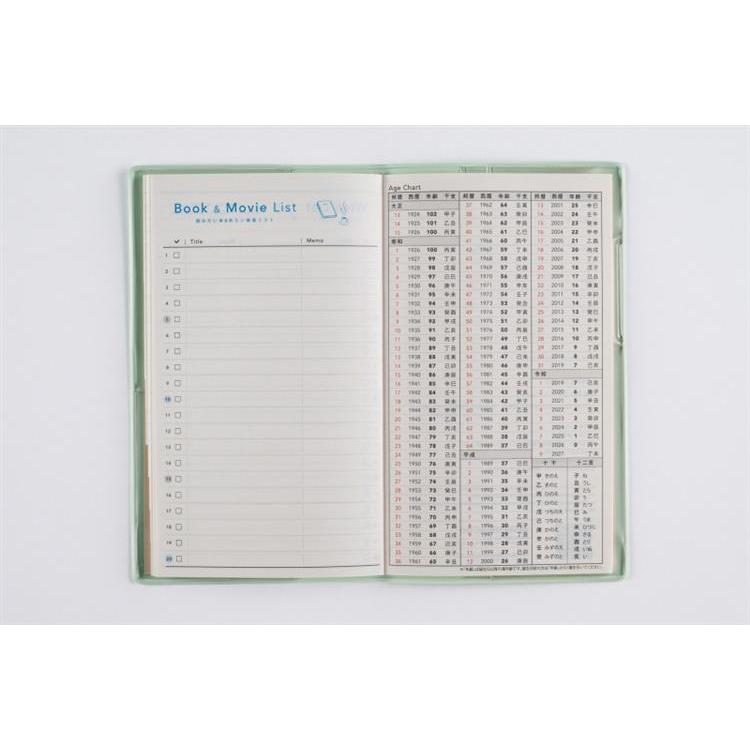 Book & Movie List
読みたい本&観たい映画リスト
✓ Title Memo
1
2
3
4
5
6
7
8
9
10
11
12
13
14
15
16
17
18
19
20
Age Chart
邦暦 西暦 年齢 干支
大正
13 1924 102 甲子
14 1925 101 乙丑
15 1926 100 丙寅
昭和
1 1926 100 丙寅
2 1927 99 丁卯
3 1928 98 戊辰
4 1929 97 己巳
5 1930 96 庚午
6 1931 95 辛未
7 1932 94 壬申
8 1933 93 癸酉
9 1934 92 甲戌
10 1935 91 乙亥
11 1936 90 丙子
12 1937 89 丁丑
13 1938 88 戊寅
14 1939 87 己卯
15 1940 86 庚辰
16 1941 85 辛巳
17 1942 84 壬午
18 1943 83 癸未
19 1944 82 甲申
20 1945 81 乙酉
21 1946 80 丙戌
22 1947 79 丁亥
23 1948 78 戊子
24 1949 77 己丑
25 1950 76 庚寅
26 1951 75 辛卯
27 1952 74 壬辰
28 1953 73 癸巳
29 1954 72 甲午
30 1955 71 乙未
31 1956 70 丙申
32 1957 69 丁酉
33 1958 68 戊戌
34 1959 67 己亥
35 1960 66 庚子
36 1961 65 辛丑
邦暦 西暦 年齢 干支
37 1962 64 壬寅
38 1963 63 癸卯
39 1964 62 甲辰
40 1965 61 乙巳
41 1966 60 丙午
42 1967 59 丁未
43 1968 58 戊申
44 1969 57 己酉
45 1970 56 庚戌
46 1971 55 辛亥
47 1972 54 壬子
48 1973 53 癸丑
49 1974 52 甲寅
50 1975 51 乙卯
51 1976 50 丙辰
52 1977 49 丁巳
53 1978 48 戊午
54 1979 47 己未
55 1980 46 庚申
56 1981 45 辛酉
57 1982 44 壬戌
58 1983 43 癸亥
59 1984 42 甲子
60 1985 41 乙丑
61 1986 40 丙寅
62 1987 39 丁卯
63 1988 38 戊辰
64 1989 37 己巳
平成
1 1989 37 己巳
2 1990 36 庚午
3 1991 35 辛未
4 1992 34 壬申
5 1993 33 癸酉
6 1994 32 甲戌
7 1995 31 乙亥
8 1996 30 丙子
9 1997 29 丁丑
10 1998 28 戊寅
11 1999 27 己卯
12 2000 26 庚辰
邦暦 西暦 年齢 干支
13 2001 25 辛巳
14 2002 24 壬午
15 2003 23 癸未
16 2004 22 甲申
17 2005 21 乙酉
18 2006 20 丙戌
19 2007 19 丁亥
20 2008 18 戊子
21 2009 17 己丑
22 2010 16 庚寅
23 2011 15 辛卯
24 2012 14 壬辰
25 2013 13 癸巳
26 2014 12 甲午
27 2015 11 乙未
28 2016 10 丙申
29 2017 9 丁酉
30 2018 8 戊戌
31 2019 7 己亥
令和
1 2019 7 己亥
2 2020 6 庚子
3 2021 5 辛丑
4 2022 4 壬寅
5 2023 3 癸卯
6 2024 2 甲辰
7 2025 1 乙巳
8 2026 0 丙午
9 2027 丁未
十干 十二支
甲 きのえ
乙 きのと
丙 ひのえ
丁 ひのと
戊 つちのえ
己 つちのと
庚 かのえ
辛 かのと
壬 みずのえ
癸 みずのと
子 ね
丑 うし
寅 とら
卯 う
辰 たつ
巳 み
午 うま
未 ひつじ
申 さる
酉 とり
戌 いぬ
亥 い